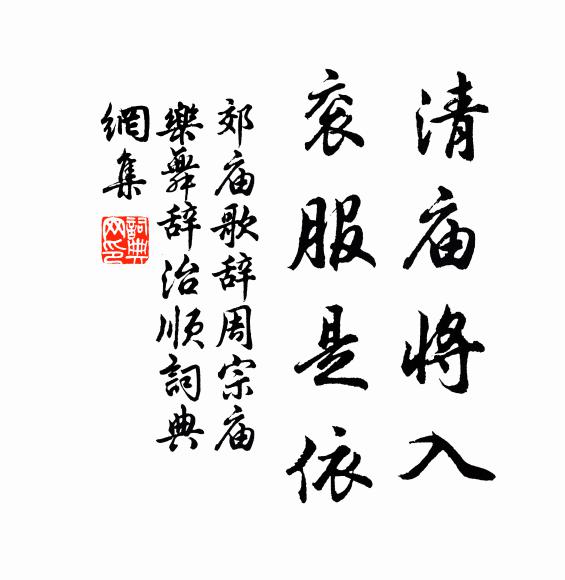 清庙将入
衮服是依
郊庙歌辞周宗庙
樂舞辞治顺詞典
網集
詞典
网印